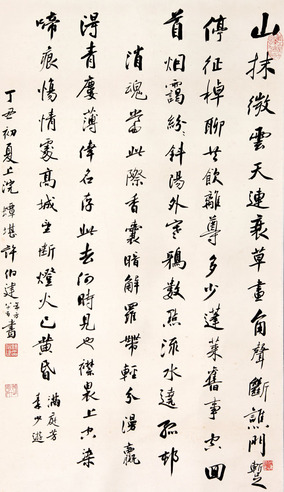 山抹微雲天連衰草畫角聲斷譙門暫
停征棹聊共飲離尊多少蓬萊舊事空回
首烟靄紛〻斜陽外寒鴉數點流水遶孤邨
消魂當此際香囊暗解羅帶輕分漫贏
得青廔薄倖名存此去何時見也襟褎上空染
啼痕傷情處高城望斷燈火已黃昏
滿庭芳
秦少游
丁丑初夏上浣蟫堪許伯建書